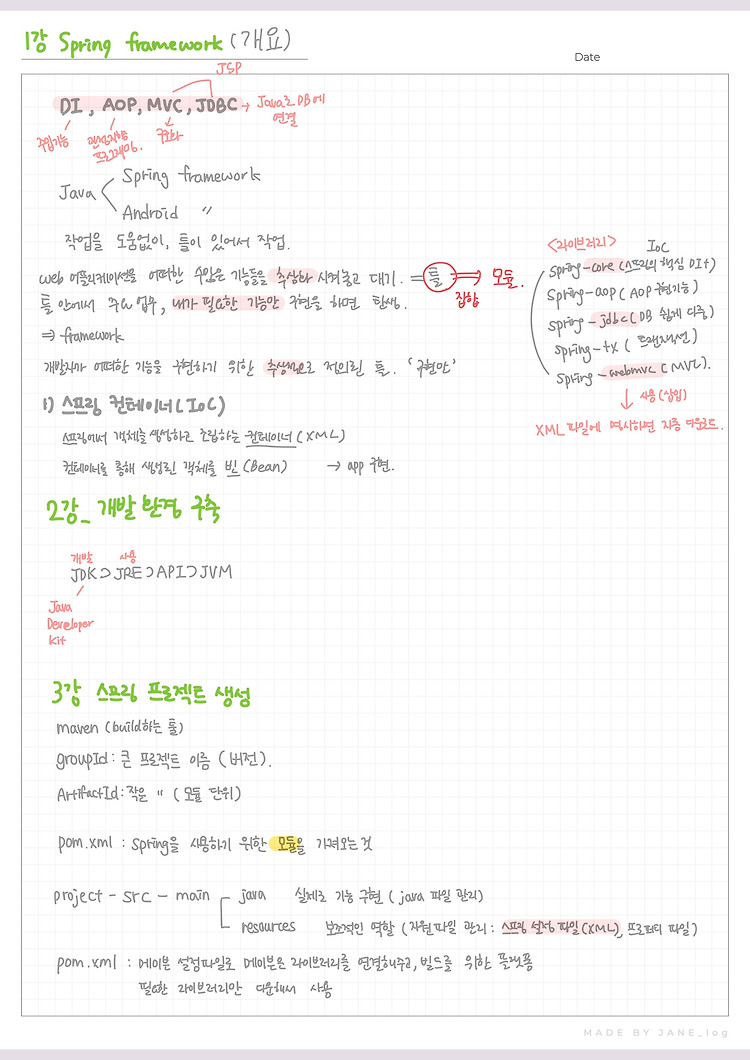 1강 Spring framework (개요)
Date
JSP
DI, AOP, MVC, JDBC → Java로 DB에 연결
주입기능
관점지향 프로그래밍.
구조화
Java
Spring framework
Android "
작업을 도움없이, 틀이 있어서 작업.
web 어플리케이션을 어떠한 수많은 기능들을 추상화 시켜놓고 대기. = 틀 ⇒ 모듈.
집합
틀 안에서 주요 업무, 내가 필요한 기능만 구현을 하면 탄생.
⇒ framework
개발자가 어떠한 기능을 구현하기 위한 추상적으로 정의된 틀. '구현만'
<라이브러리> IoC
spring-core (스프링의 핵심 DI+)
spring-aop (AOP 구현기능)
spring-jdbc (DB 쉽게 다룸)
spring-tx (트랜잭션)
spring-webmvc (MVC).
↓ 사용 (삽입)
XML 파일에 명시하면 자동 다운로드.
1) 스프링 컨테이너 (IoC)
스프링에서 객체를 생성하고 조립하는 컨테이너 (XML)
컨테이너를 통해 생성된 객체를 빈 (Bean) → app 구현.
2강_ 개발 환경 구축
개발 사용
JDK ⊃ JRE ⊃ API ⊃ JVM
Java
Developer
Kit
3강 스프링 프로젝트 생성
maven (build하는 툴)
groupId : 큰 프로젝트 이름 (버전).
ArtifactId : 작은 " (모듈 단위)
pom.xml : spring을 사용하기 위한 모듈을 가져오는 것
project - src - main
java 실제로 기능 구현 (java 파일 관리)
resources 보조적인 역할 (자원파일 관리 : 스프링 설정 파일 (XML), 프로퍼티 파일)
pom.xml : 메이븐 설정파일로 메이븐은 라이브러리를 연결해주고, 빌드를 위한 플랫폼
필요한 라이브러리만 다운해서 사용
MADE BY JANE_log